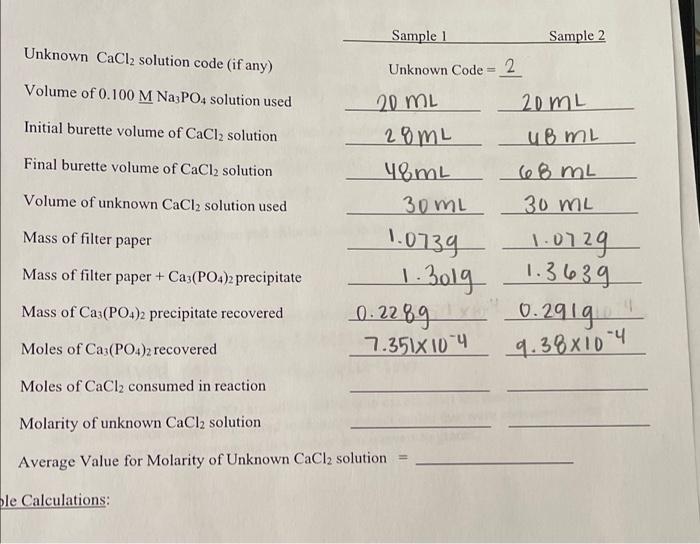 Sample 1 Sample 2
Unknown CaCl₂ solution code (if any) Unknown Code = 2
Volume of 0.100 M Na₃PO₄ solution used 20 mL 20 mL
Initial burette volume of CaCl₂ solution 28 mL 48 mL
Final burette volume of CaCl₂ solution 48 mL 68 mL
Volume of unknown CaCl₂ solution used 30 mL 30 mL
Mass of filter paper 1.073g 1.072g
Mass of filter paper + Ca₃(PO₄)₂ precipitate 1.301g 1.363g
Mass of Ca₃(PO₄)₂ precipitate recovered 0.228g 0.291g
Moles of Ca₃(PO₄)₂ recovered 7.351X10⁻⁴ 9.38X10⁻⁴
Moles of CaCl₂ consumed in reaction
Molarity of unknown CaCl₂ solution
Average Value for Molarity of Unknown CaCl₂ solution =
Calculations: